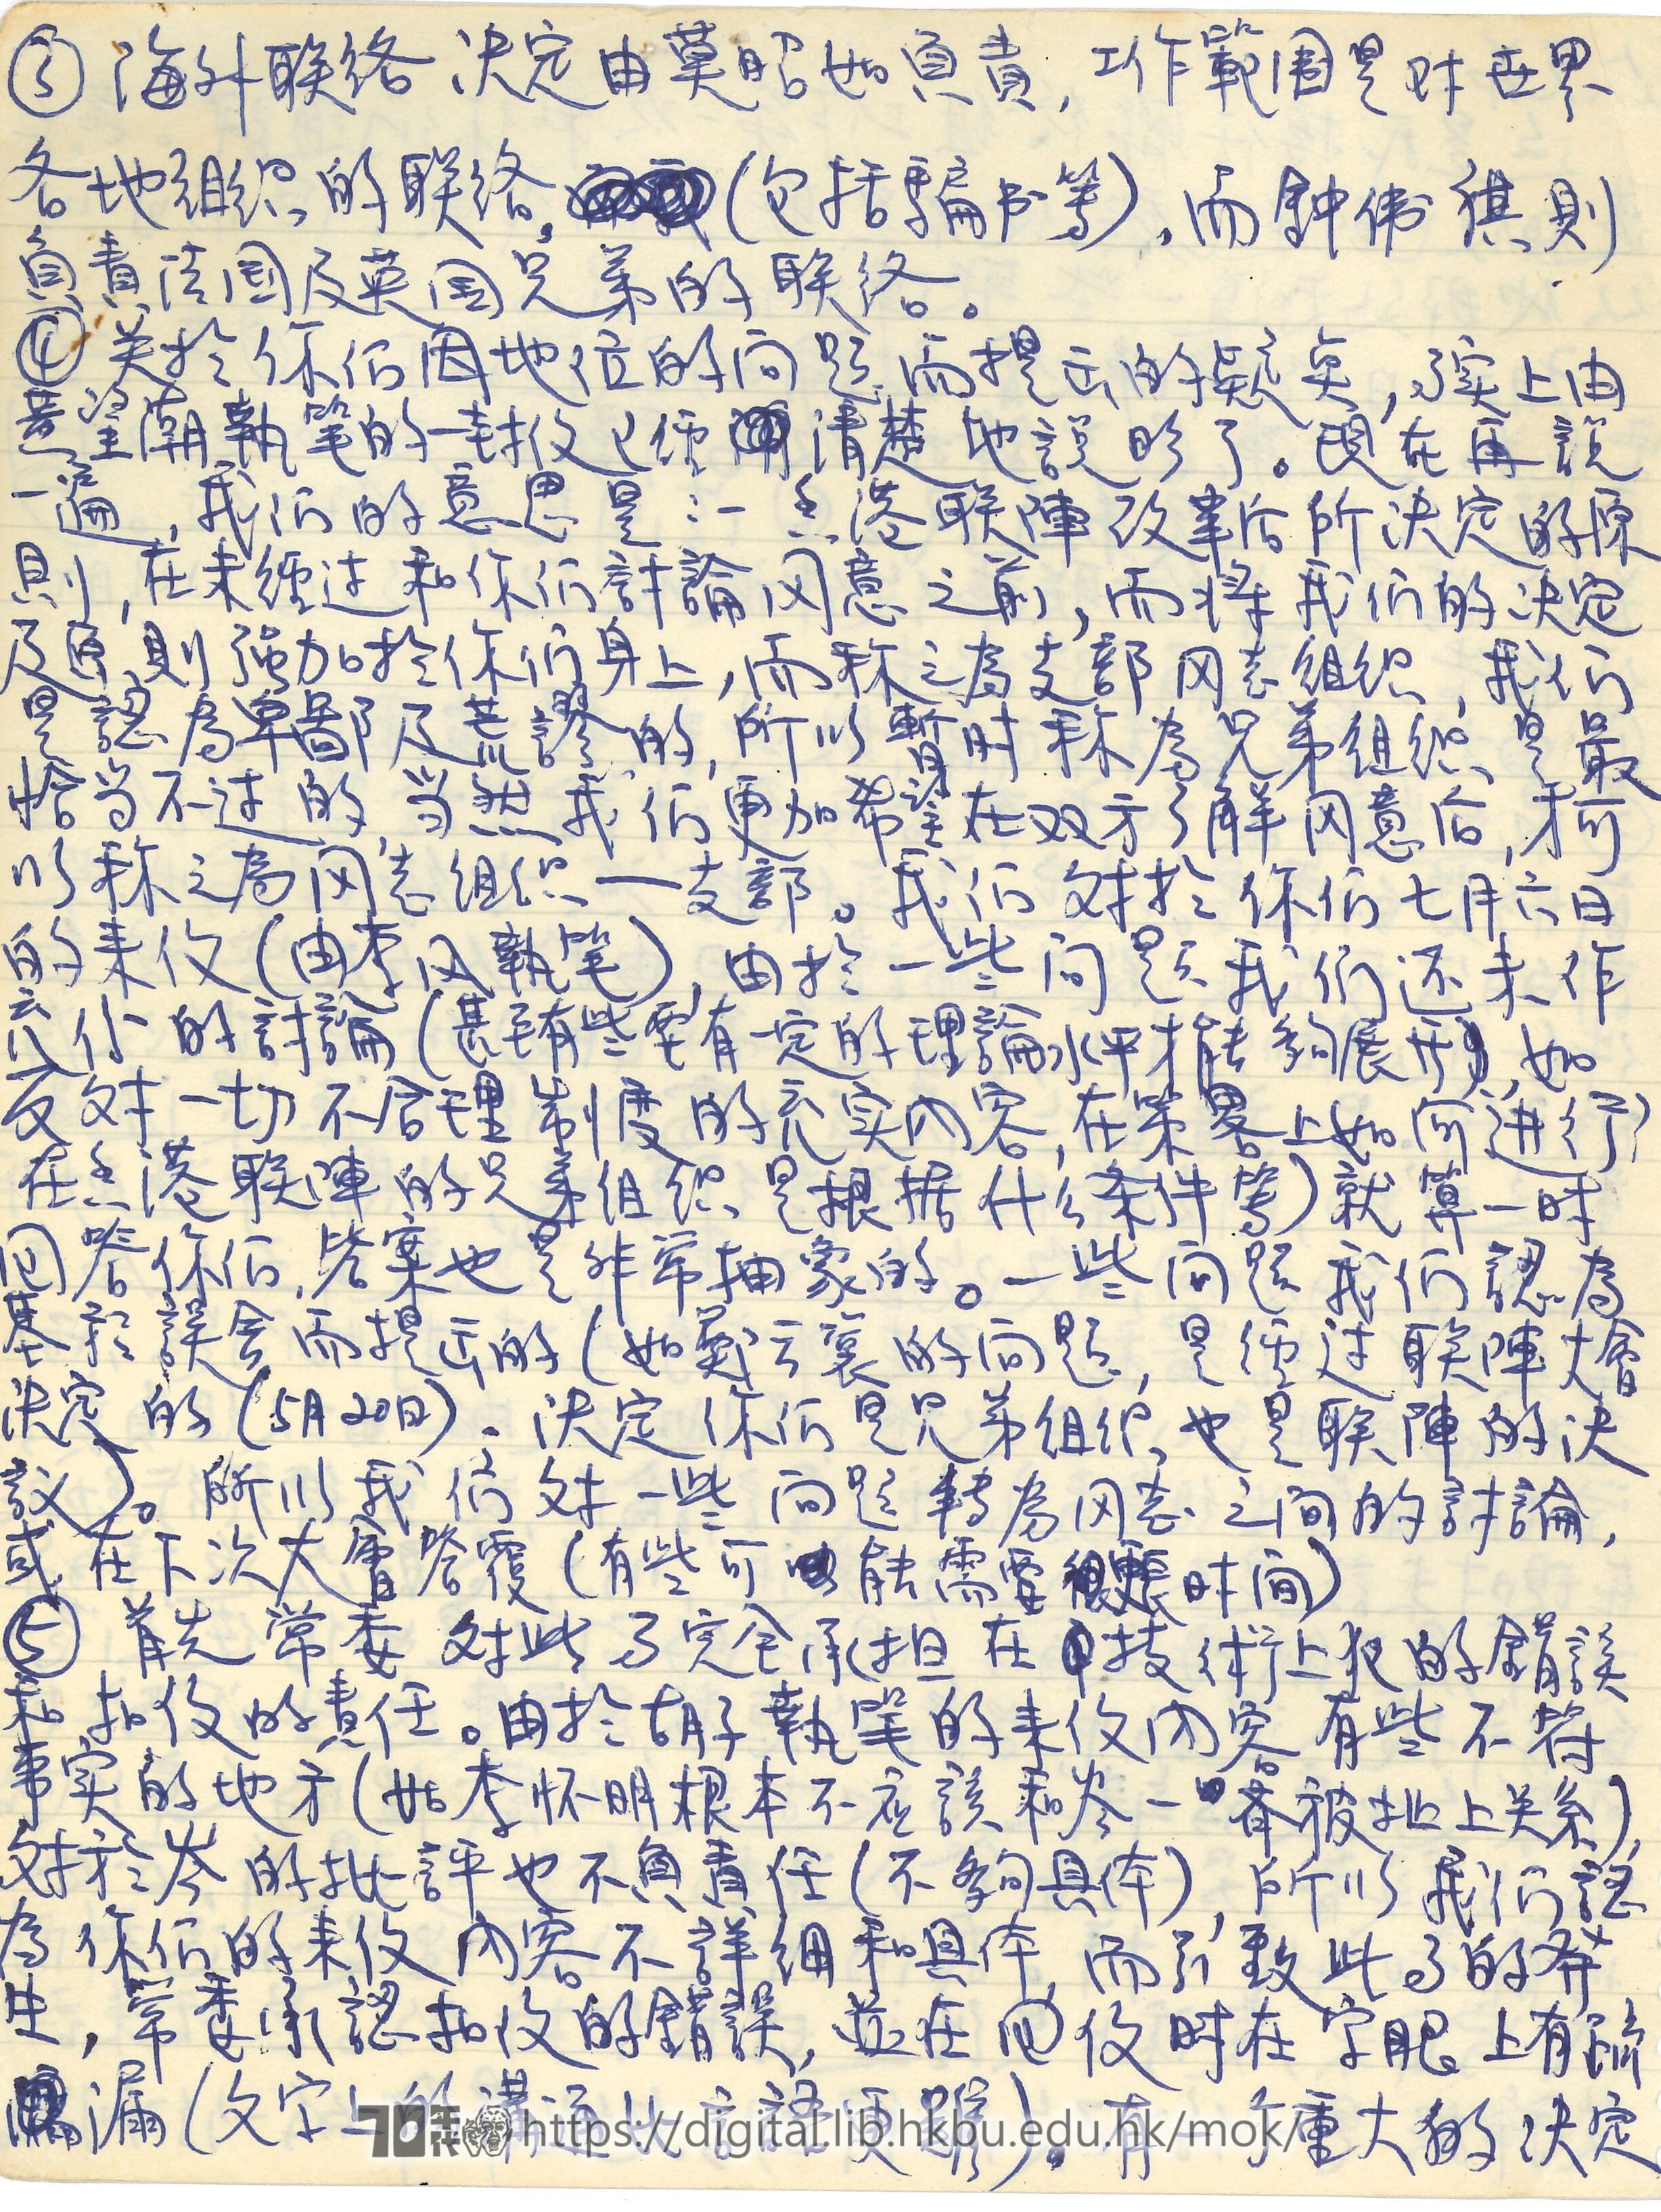 ③ 海外联络 決定由莫昭如負責，工作範围是对世界
各地组织的联络，(包括騙书等)，而鈡伟祺則
負責法国及英国兄弟的联络。
④ 关於你们因地位的问题而提出的疑奌，事实上由
岑望潮執笔的一封伩已经清楚地説明了。现在再説
一遍，我们的意思是：一香港联陣改革后所決定的原
則，在未经过和你们討論同意之前，而将我们的决定
及原則强加於你们身上，而称之為支部同志组织，我们
是認為卑鄙及荒謬的，所以暫时称為兄弟组织是最
恰当不过的，当然我们更加希望在双方了解同意后，才可
以称之為同志组织一支部。我们对於你们七月六日
的来伩(由李风執笔)，由於一些问题我们还未作
公开的討論(甚至有些要有一定的理論水平才能夠展开)，如
反对一切不合理制度的充实内容，在策畧上如何進行，
在香港联陣的兄弟组织是根据什么条件等)就算一时
回答你们，答案也是非常抽象的。一些问题我们認為
基於誤会而提出的(如鄭云裳的问题，是经过联陣大會
決定的(5月20日)，決定你们是兄弟组织也是联陣的决
議)。所以我们对一些问题轉為同志之间的討論，
或在下次大會答覆(有些可能需要很長时间)
⑤ 首先常委对此事完全承担在技術上犯的錯誤
和拈伩的責任。由於胡子執笔的来伩内容有些不符
事实的地方(如李怀明根本不应該和岑一齐被扯上关系)，
对於岑的批評也不負責任(不夠具体)，所以我们認
為你们的来伩内容不詳细和具体，而引致此事的發
生，常委承認拈伩的錯誤，並在回伩时在字眼上有疏
漏(文字上的溝通比言語更难)。有一事重大的决定
70年代 https://digital.lib.hkbu.edu.hk/mok/